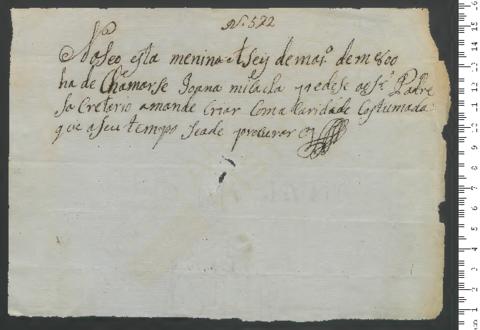 N. 522
Naseo esta menina A seis de maio de m 800
ha de Chamarse Joana micaela pedese ao Sr. Padre
sacreterio amande Criar Com a Caridade Costumada
que a seu tempo seade procurar